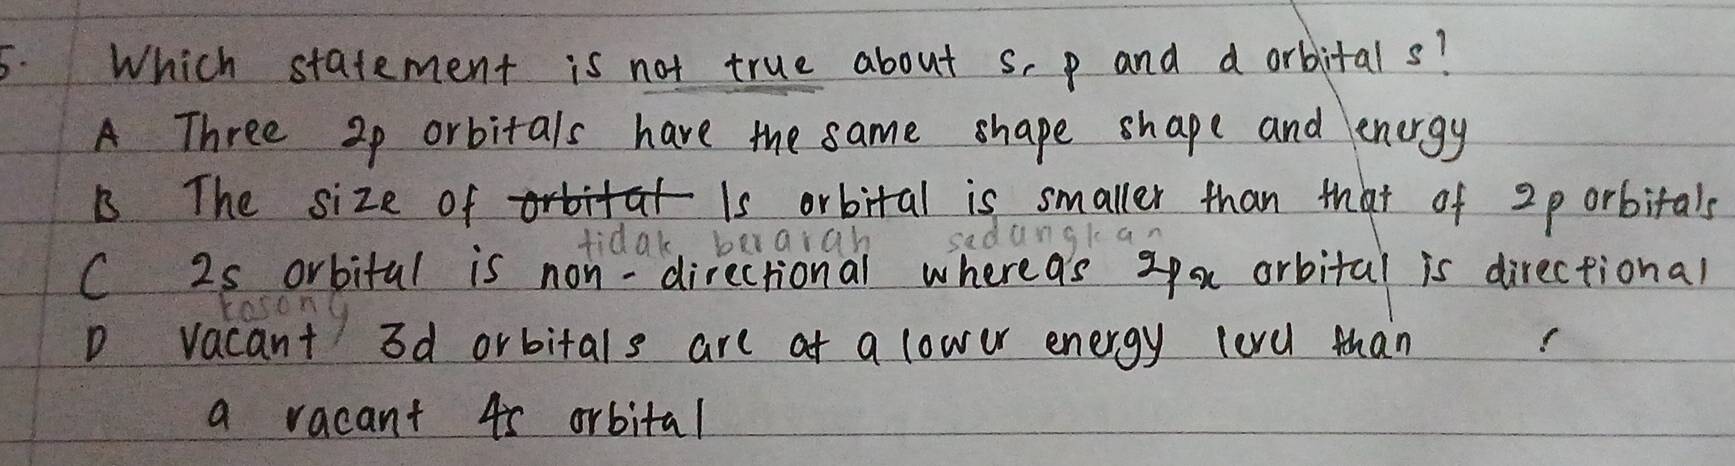 5. Which statement is not true about s, p and d orbitals?
A Three 2p orbitals have the same shape shape and energy
B The size of orbital 1s orbital is smaller than that of 2p orbitals
tidak berarah sedangkan
C 2s orbital is non-directional whereas 2px orbital is directional
kosong
D vacant 3d orbitals are at a lower energy level than
a vacant 4s orbital